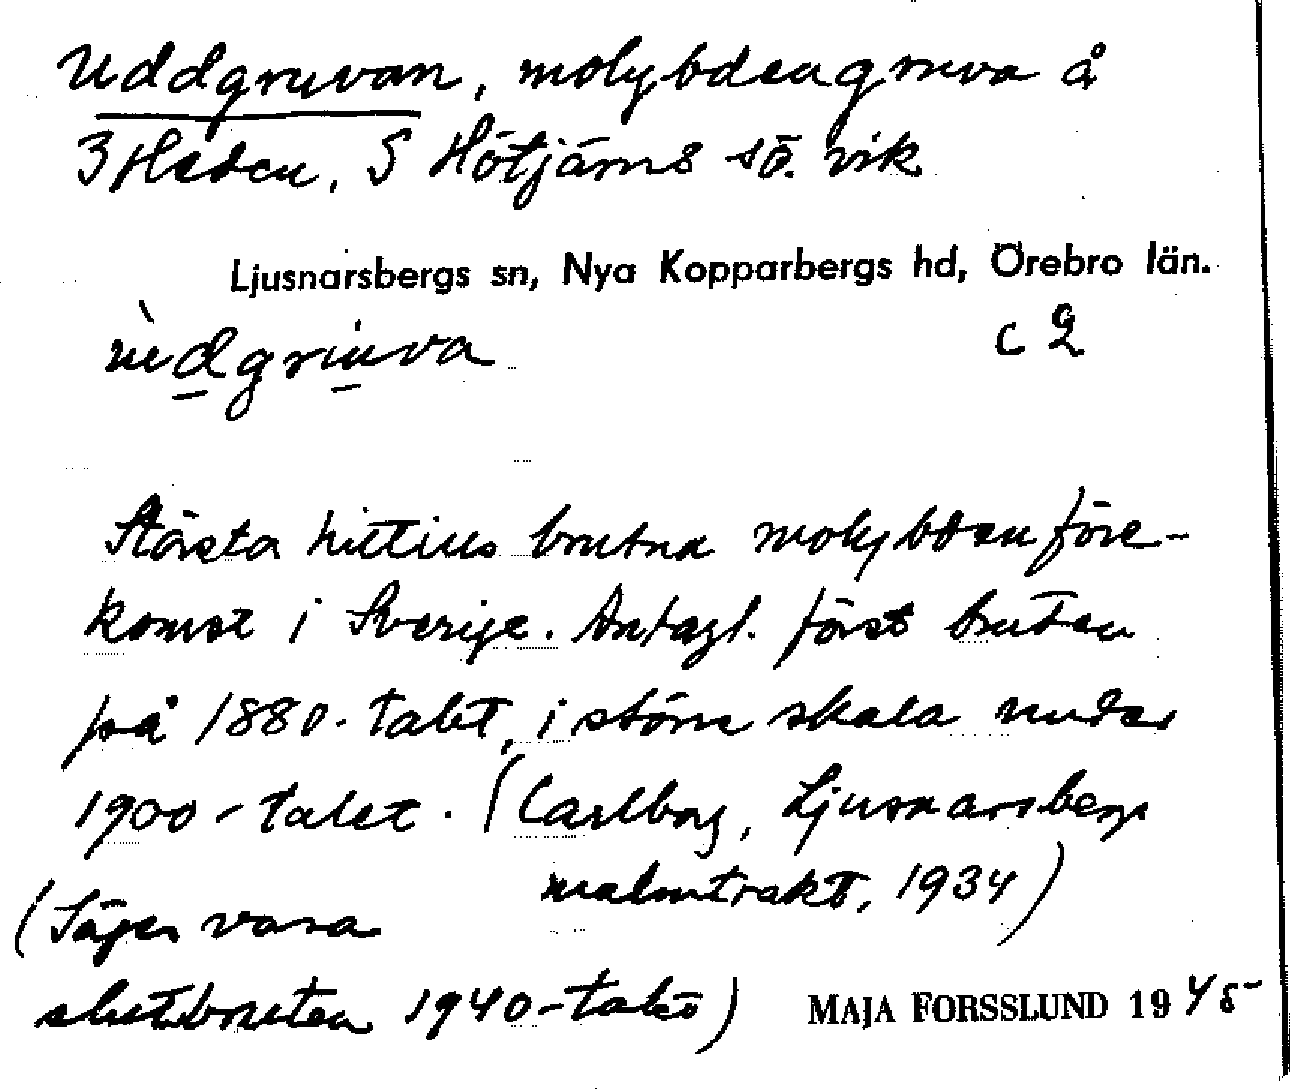 Uddgruvan, molybdengruva å
3 Heden, S Hötjärns sö. vik
Ljusnarsbergs sn, Nya Kopparbergs hd, Örebro län.
ùdgruva c 2
Största hittills brutna molybdenföre-
komst i Sverige. Antagl. först bruten
på 1880-talet, i större skala under
1900-talet. (Carlborg, Ljusnarsbergs
malmtrakt, 1934)
(Säges vara
slutbruten 1940-talet)
MAJA FORSSLUND 1945